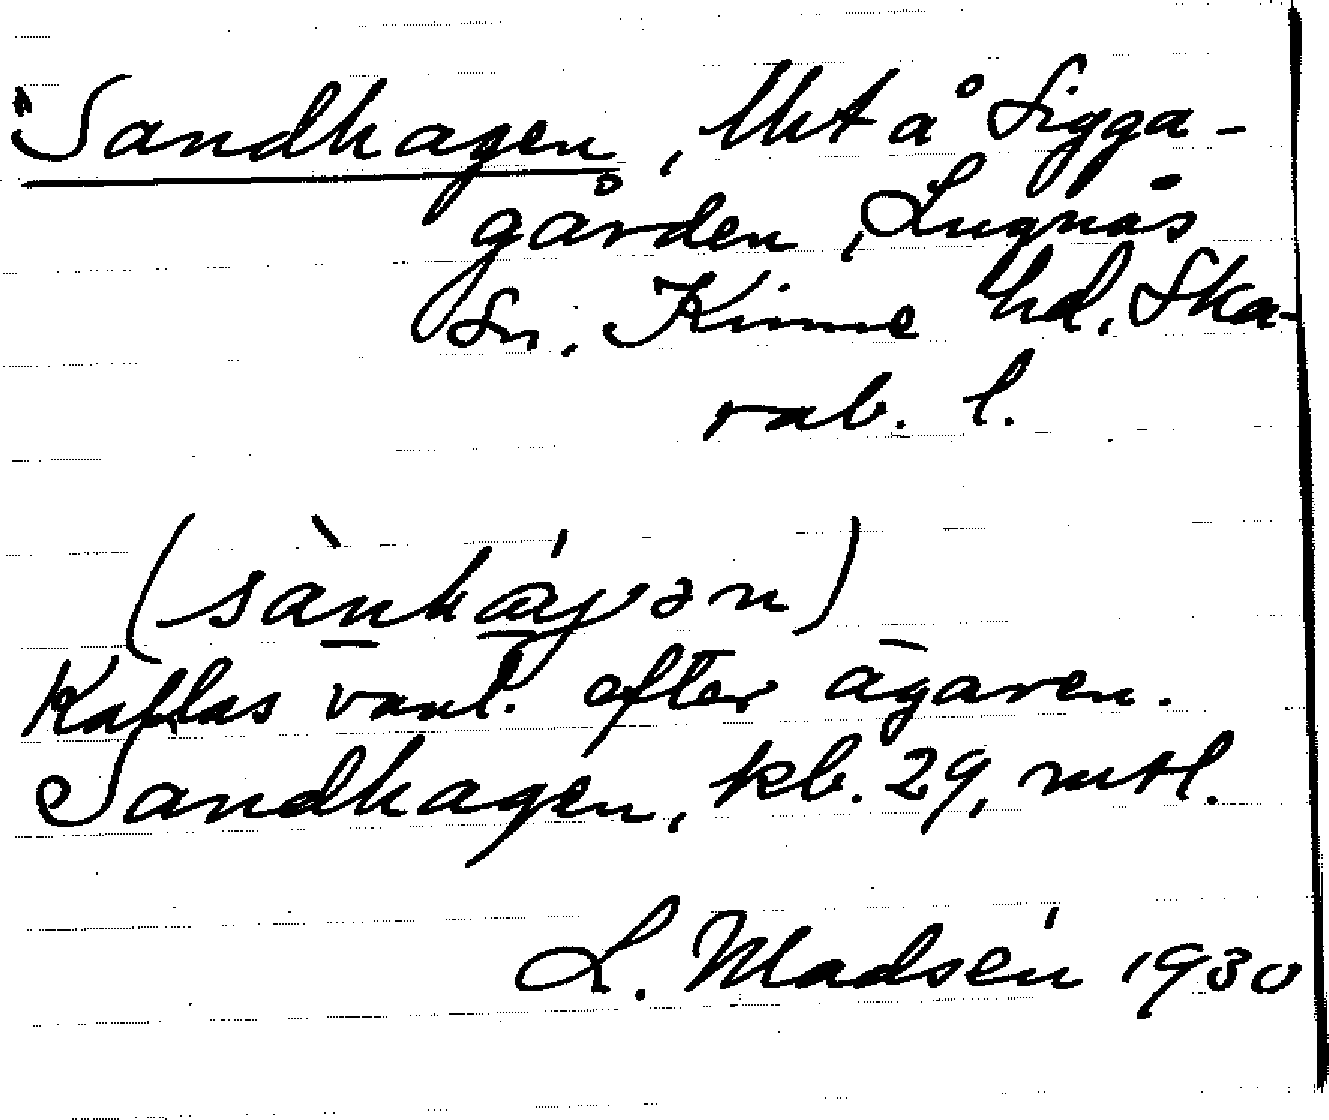 Sandhagen, lht å Sigga-
gården, Lugnås
Sn. Kinne hd. Ska-
rab. l.
(sànháɣən)
Kallas vanl. efter ägaren.
Sandhagen, kb. 29, mtl.
L. Madsén 1930